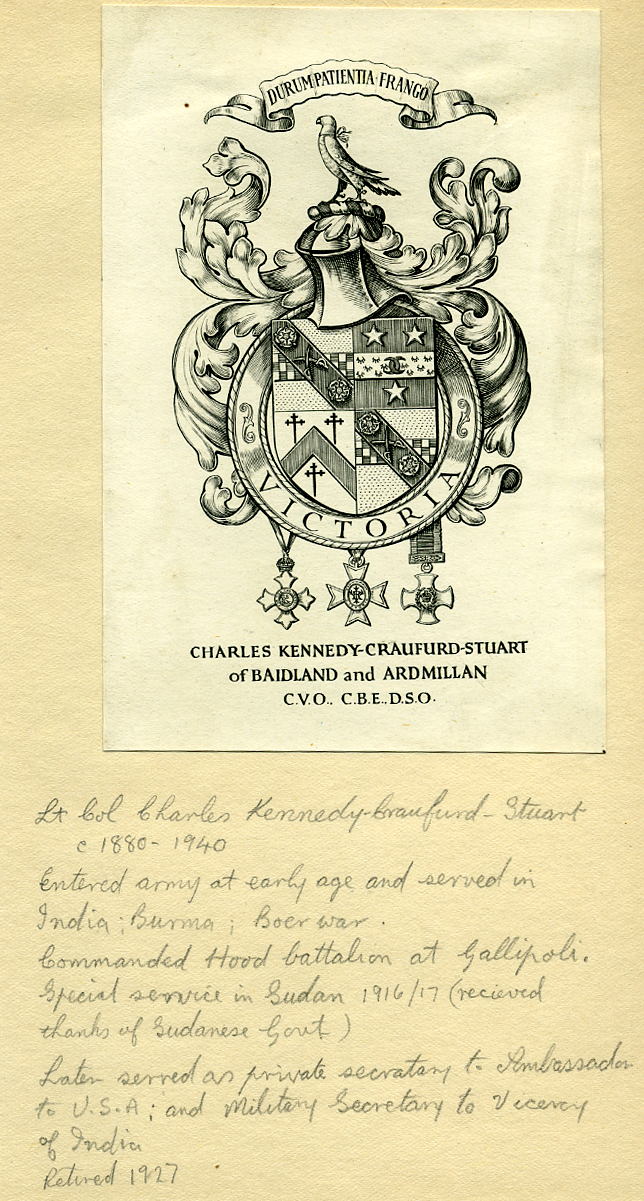 DURUM·PATIENTIA·FRANGO
VICTORIA
CHARLES KENNEDY-CRAUFURD-STUART
of BAIDLAND and ARDMILLAN
C.V.O.. C.B.E..D.S.O.
Lt Col Charles Kennedy-Craufurd-Stuart
c 1880-1940
Entered army at early age and served in
India; Burma; Boer war.
Commanded Hood battalion at Gallipoli.
Special service in Sudan 1916/17 (recieved
thanks of Sudanese Govt)
Later served as private secratary to Ambassador
to U.S.A; and Military Secretary to Viceroy
of India
Retired 1927